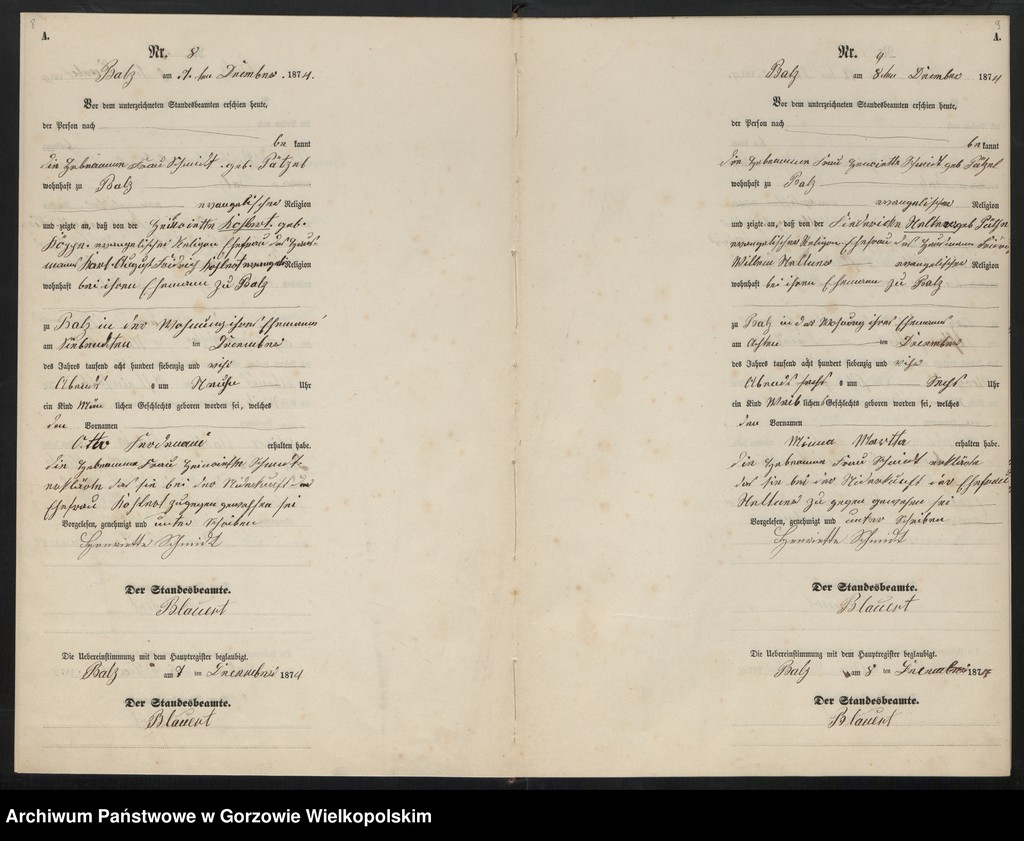 8
A.
Nr. 8
Balz am 7. ten December 1874.
Vor dem unterzeichneten Standesbeamten erschien heute,
der Person nach
be kannt
die Hebeamme Frau Schmidt geb. Pätzel
wohnhaft zu Balz
evangelischer Religion
und zeigte an, daß von der geb.
evangelischer Religion Ehefrau des
Karl August Religion
wohnhaft bei ihren Ehemann zu Balz
zu Balz in der Wohnung ihres Ehemanns
am Siebendten ten December
des Jahres tausend acht hundert siebenzig und vier
Abends um Uhr
ein Kind Män lichen Geschlechts geboren worden sei, welches
den Vornamen
Otto erhalten habe.
die Hebeamme Frau Schmidt
erklärte das sie bei der Niderkunft der
Ehefrau zugegen gewesen sei
Vorgelesen, genehmigt und unter schriben
Henriette Schmidt
Der Standesbeamte.
Blauert
Die Uebereinstimmung mit dem Hauptregister beglaubigt.
Balz am 7 ten December 1874
Der Standesbeamte.
Blauert
9
A.
Nr. 9
Balz am 8 ten December 1874
Vor dem unterzeichneten Standesbeamten erschien heute,
der Person nach
be kannt
die Hebeamme Frau Henriette Schmidt geb Pätzel
wohnhaft zu Balz
evangelischer Religion
und zeigte an, daß von der geb
evangelischer Religion Ehefrau des
evangelischer Religion
wohnhaft bei ihren Ehemann zu Balz
zu Balz in der Wohnung ihres Ehemanns
am Achten ten December
des Jahres tausend acht hundert siebenzig und vier
Abends sechs um Sechs Uhr
ein Kind Weib lichen Geschlechts geboren worden sei, welches
den Vornamen
Minna Martha erhalten habe.
die Hebeamme Frau Schmidt erklärte
das sie bei der Niderkunft der Ehefrau
zu gegen gewesen sei
Vorgelesen, genehmigt und unter schriben
Henriette Schmidt
Der Standesbeamte.
Blauert
Die Uebereinstimmung mit dem Hauptregister beglaubigt.
Balz am 8 ten December 1874
Der Standesbeamte.
Blauert
Archiwum Państwowe w Gorzowie Wielkopolskim